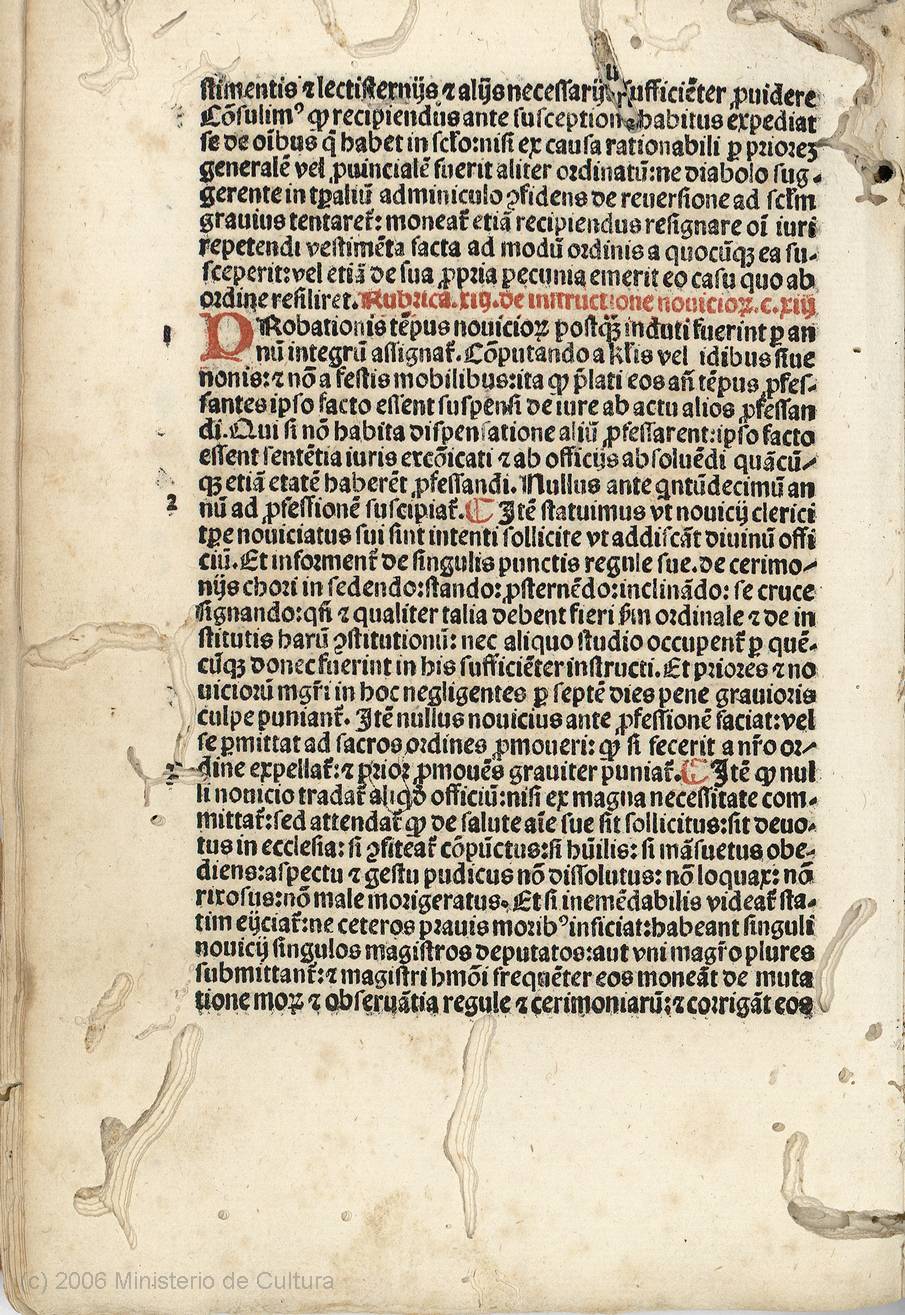 stimentis ⁊ lectisternijs ⁊ alijs necessarijs sufficiēter ꝓuidere
Cōsulimꝰ ꝙ recipiendus ante susceptionē habitus expediat
se de oībus q̄ habet in scło: nisi ex causa rationabili ꝑ priorez
generalē vel ꝓuincialē fuerit aliter ordinatū: ne diabolo sug-
gerente in tꝑaliū adminiculo ↄfidens de reuersione ad sclm̄
grauius tentareť: moneať etiā recipiendus resignare oī iuri
repetendi vestimēta facta ad modū ordinis a quocūqꝫ ea su-
sceperit: vel etiā de sua ꝓpria pecunia emerit eo casu quo ab
ordine resiliret. Rubrica. xiij. de instructione nouicioꝝ. c. xiij
PRobationis tēpus nouicioꝝ postqꝫ̄ induti fuerint ꝑ an
nū integrū assignať. Cōputando a kľis vel idibus siue
nonis: ⁊ nō a festis mobilibus: ita ꝙ p̄lati eos añ tēpus ꝓfes-
santes ipso facto essent suspensi de iure ab actu alios ꝓfessan
di. Qui si nō habita dispensatione aliū ꝓfessarent: ipso facto
essent sentētia iuris excōicati ⁊ ab officijs absoluēdi quācū-
qꝫ etiā etatē haberēt ꝓfessandi. Nullus ante qntūdecimū an
1
2
nū ad ꝓfessionē suscipiať. ¶ Itē statuimus vt nouicij clerici
tꝑe nouiciatus sui sint intenti sollicite vt addiscāt diuinū offi
ciū. Et informenť de singulis punctis regule sue. de cerimo-
nijs chori in sedendo: stando: ꝓsternēdo: inclinādo: se cruce
signando: qñ ⁊ qualiter talia debent fieri ẜm ordinale ⁊ de in
stitutis harū ↄstitutionū: nec aliquo studio occupenť ꝑ quē-
cūqꝫ donec fuerint in his sufficiēter instructi. Et priores ⁊ no
uiciorū mgři in hoc negligentes ꝑ septē dies pene grauioris
culpe puniant̃. Itē nullus nouicius ante ꝓfessionē faciat: vel
se ꝑmittat ad sacros ordines ꝓmoueri: ꝙ si fecerit a nřo or-
dine expellať: ⁊ prior ꝓmouēs grauiter puniať. ¶ Itē ꝙ nul
li nouicio tradať aliqd̄ officiū: nisi ex magna necessitate com-
mittať: sed attendať ꝙ de salute aīe sue sit sollicitus: sit deuo-
tus in ecclesia: si ↄfiteať cōpūctus: si hūilis: si māsuetus obe-
diens: aspectu ⁊ gestu pudicus nō dissolutus: nō loquax: nō
rixosus: nō male morigeratus. Et si inemēdabilis videať sta-
tim eijciať: ne ceteros prauis moribꝰ inficiat: habeant singuli
nouicij singulos magistros deputatos: aut vni magřo plures
submittanť: ⁊ magistri hmōi frequēter eos moneāt de muta
tione moꝝ ⁊ obseruātia regule ⁊ cerimoniarū: ⁊ corrigāt eos
(c) 2006 Ministerio de Cultura